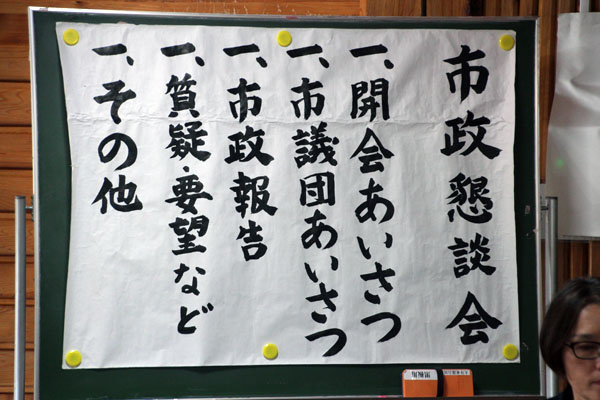 市政懇談会
一、開会あいさつ
一、市議団あいさつ
一、市政報告
一、質疑・要望など
一、その他